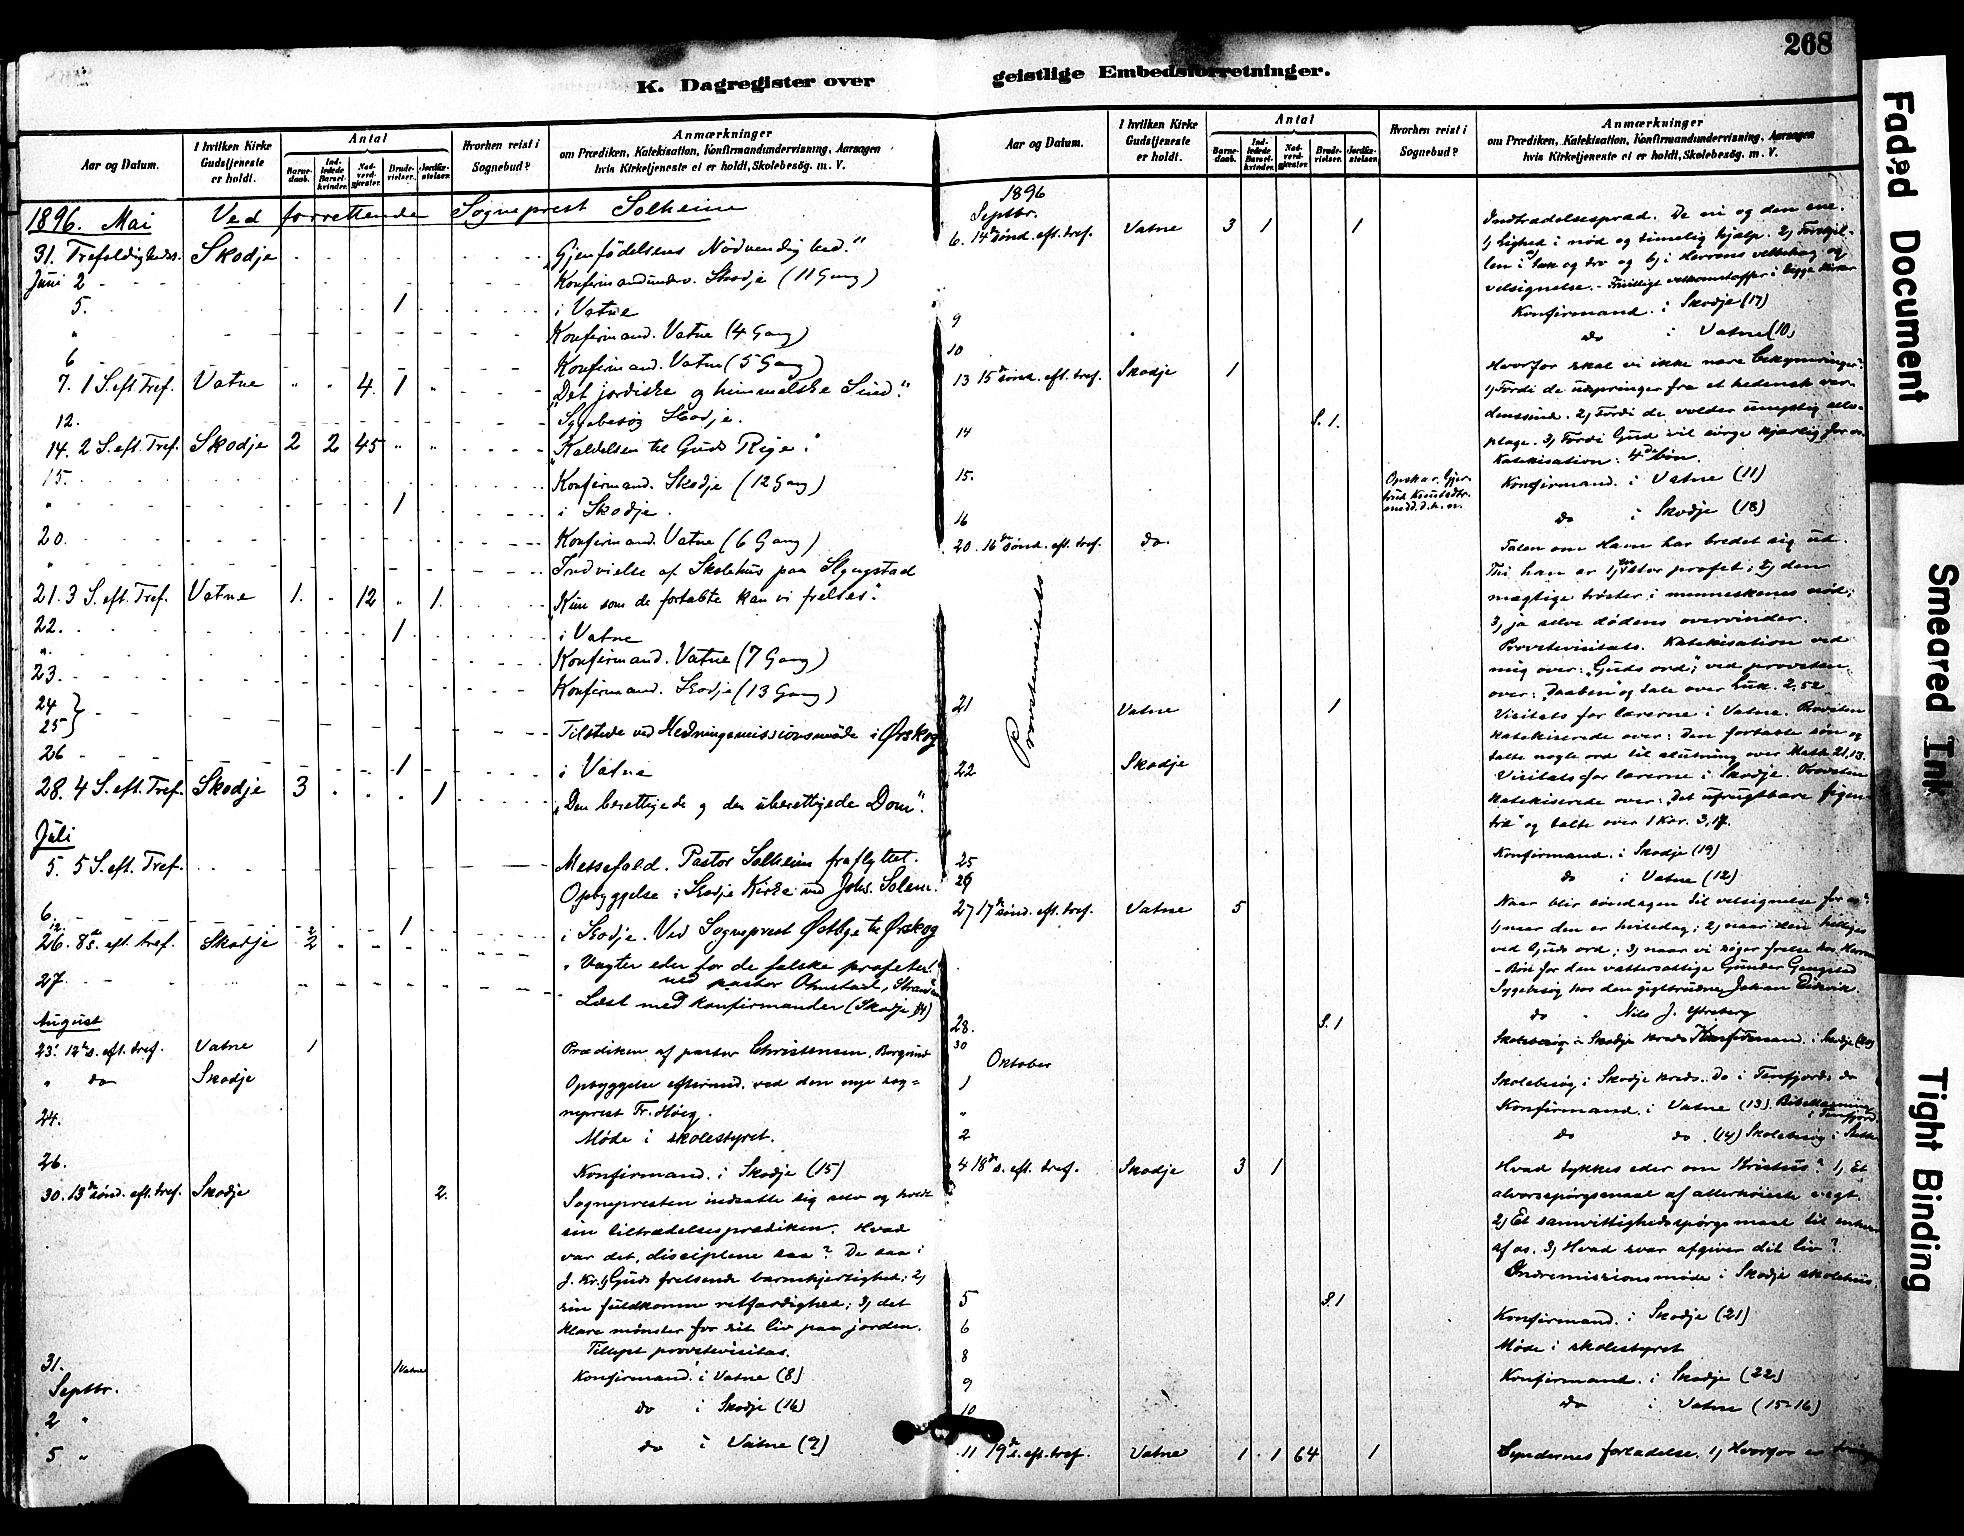 268
K. Dagregister over
geistlige Embedsforretninger.
Aar og Datum.
I hvilken Kirke Gudstjeneste er holdt.
Antal
Barnedaab.
Indledede Barselkvinder.
Nadverdgjester.
Brudevielser.
Jordfæstelser.
Hvorhen reist i Sognebud?
Anmærkninger
om Prædiken, Katekisation, Konfirmandundervisning, Aarsagen
hvis Kirketjeneste ei er holdt, Skolebesøg. m. V.
1896. Mai Ved forrettende Sogneprest Solheim
31. Trefoldigheds. Skodje "Gjenfödelsens Nødvendighed."
Juni 2 Konfirmandunderv. Skodje (11 Gang)
5. 1 i Vatne
" Konfirmand. Vatne (4 Gang)
6 Konfirmand. Vatne (5 Gang)
7. 1 S. eft. Tref. Vatne " " 4. 1 " "Det jordiske og himmelske Sind."
12. Sygebesøg Skodje.
14. 2 S. eft. Tref. Skodje 2 2 45 " " "Kaldelsen til Guds Rige."
15. Konfirmand. Skodje (12 Gang)
" 1 i Skodje.
20. Konfirmand. Vatne (6 Gang)
" Indvielse af Skolehus paa
21. 3 S. eft. Tref. Vatne 1. " 12 " 1. "Kun som de fortabte kan vi frelses."
22. 1 i Vatne
" Konfirmand. Vatne (7 Gang)
23. Konfirmand. Skodje (13 Gang)
24
25} Tilstede ved Hedningemissionsmøde i Ørskog
26 1 i Vatne
28. 4 S. eft. Tref. Skodje 3 " " " 1 "Den berettigede og den uberettigede Dom".
Juli
5. 5 S. eft. Tref. Messefald. Pastor Solheim fraflyttet.
Opbyggelse i Skodje Kirke ved Johs. Solem.
6. 1 i Skodje. Ved Sogneprest Østbye til Ørskog
12. 2
26. 8de s. eft. tref. Skodje 2 " Vogter eder for de falske profeter!
ved pastor
27. Læst med konfirmander (Skodje 14)
August
23. 12te s. eft. tref. Vatne 1 Prædiken af pastor Christensen, Borgund
" do Skodje Opbyggelse eftermid. ved den nye sog=
neprest Fr. Høeg.
24. Møde i skolestyret.
26. Konfirmand. i Skodje (15)
30. 13de sönd. eft. tref. Skodje 2. Sognepresten indsatte sig selv og holdt
sin tiltrædelsesprædiken. Hvad
var det, disciplene saa? De saa i
J. Kr. 1) Guds frelsende barmhjertighed; 2)
sin fuldkomne retfærdighed; 3) det
klare mønster for sit liv paa jorden.
Tillyst provstevisitas.
31. 1 Vatne Konfirmand. i Vatne (8)
Septbr.
2 " do i Skodje (16)
5 " do i Vatne (9)
Aar og Datum.
I hvilken Kirke Gudstjeneste er holdt.
Antal
Barnedaab.
Indledede Barselkvinder.
Nadverdgjester.
Brudevielser.
Jordfæstelser.
Hvorhen reist i Sognebud?
Anmærkninger
om Prædiken, Katekisation, Konfirmandundervisning, Aarsagen
hvis Kirketjeneste ei er holdt, Skolebesøg. m. V.
1896
Septbr.
6. 14de sönd. eft. tref. Vatne 3 1 1 Indtrædelsespræd. De ni og den ene.
1) Lighed i nød og timelig hjælp. 2) Forskjel-
len i a) tak og b) i Herrens velbehag og
velsignelse.
9 Konfirmand. i Skodje (17)
10 do i Vatne (10)
13 15de sönd. eft. tref. Skodje 1 Hvorfor skal vi ikke være bekymringer?
1) Fordi de udspringer fra et hedensk ver-
denssind. 2) Fordi de volder unyttig selv-
plage. 3) Fordi Gud vil sørge kjærlig for os.
Katekisation: 4de bön.
14 S. 1.
15. Konfirmand. i Vatne (11)
16 do i Skodje (18)
20. 16de sönd. eft. tref. do. Talen om Ham har bredet sig ud.
Thi han er 1) en stor profet; 2) den
mægtige trøster i menneskenes nöd;
3) ja selve dødens overvinder.
Provstevisitats. Katekisation ved
mig over: "Guds ord"; ved provsten
over: "Daaben" og tale over Luk. 2, 52.
Provstevisitats
21 Vatne 1 Visitats for lærerne i Vatne. Provsten
katekiserede over: Den fortabte søn og
talte nogle ord til slutning over Math. 21, 13.
22 Skodje Visitats for lærerne i Skodje. Provsten
katekiserede over: "Det ufrugtbare figen-
træ" og talte over 1 Kor. 3, 17.
25 Konfirmand. i Skodje (19)
26 do i Vatne (12)
27 17de sönd. eft. tref. Vatne 5 Naar blir söndagen til velsignelse for os?
1) naar den er hviledag; 2) naar den helliges
ved Guds ord; 3) naar vi søger frelse hos Herren
- Bön for den vattersottige Gunder
Sygebesøg hos den
28. S. 1 do " Nils J.
30 Skolebesøg i Skodje kreds Konfirmand. i Skodje (20)
Oktober
1 Skolebesøg i Skodje kreds. Do i Tenfjords do
" Konfirmand. i Vatne (13). Bibellæsning i Tenfjord
2 do do. (14) Skolebesøg i
4 18de s. eft. tref. Skodje 3 1 Hvad tykkes eder om Kristus? 1) Et
alvorsspørgsmaal af allerhøieste vægt.
2) Et samvittighedsspørgsmaal til enhver
af os. 3) Hvad svar afgiver dit liv?
Indremissionsmøde i Skodje skolehus.
5 S. 1
6 Konfirmand. i Skodje (21)
8 Møde i skolestyret
9 Konfirmand. i Skodje (22)
10 do i Vatne (15-16)
11 19de s. eft. tref. Vatne 1 1 64 1 Syndernes forladelse. 1) Hvorfor er
Faded Document
Smeared Ink
Tight Binding